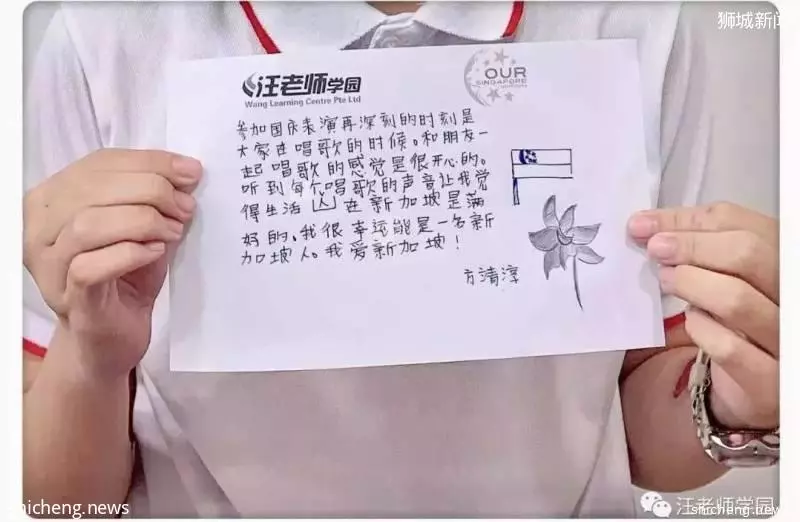 狮城新闻
汪老师学园
Wang Learning Centre Pte Ltd
OUR
SINGAPORE
参加国庆表演再深刻的时刻是
大家在唱歌的时候。和朋友一
起唱歌的感觉是很开心的。
听到每个唱歌的声音让我觉
得生活在新加坡是满
好的。我很幸运能是一名新
加坡人。我爱新加坡!
方清淳
shicheng.news
汪老师学园
shicheng.news